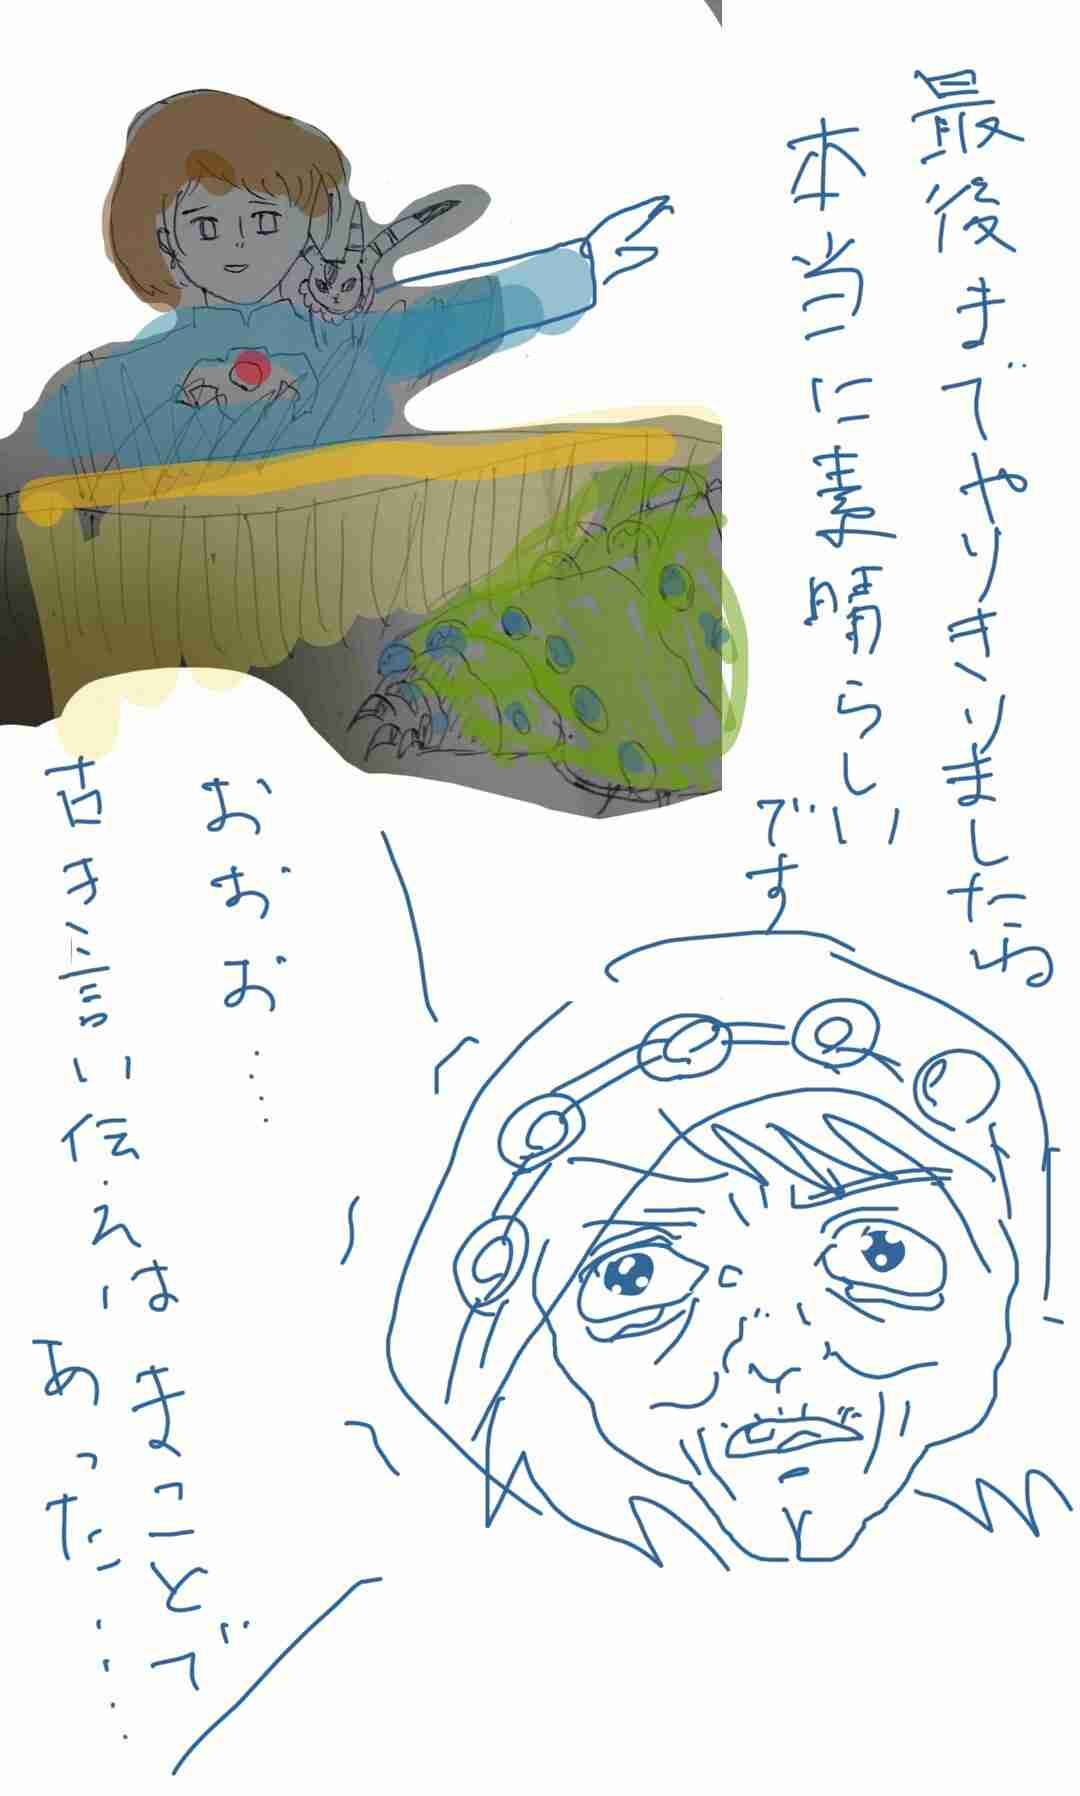 最後までやりきりましたね
本当に素晴らしい
です
おおお…
古き言い伝えは
まことで
あった……